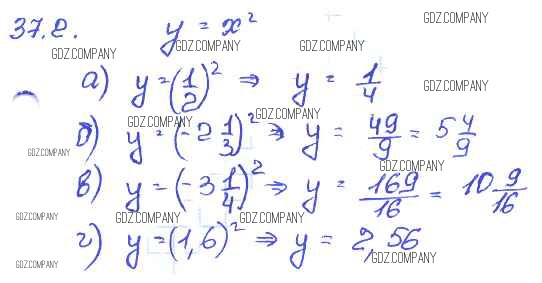 37.2. y = x² GDZ.COMPANY
GDZ.COMPANY GDZ.COMPANY GDZ.COMPANY
а) y = (1/2)² ⇒ y = 1/4 GDZ.COMPANY
GDZ.COMPANY GDZ.COMPANY
б) y = (-2 1/3)² ⇒ y = 49/9 = 5 4/9
GDZ.COMPANY GDZ.COMPANY
в) y = (-3 1/4)² ⇒ y = 169/16 = 10 9/16
GDZ.COMPANY GDZ.COMPANY GDZ.COMPANY
г) y = (1,6)² ⇒ y = 2,56
GDZ.COMPANY GDZ.COMPANY